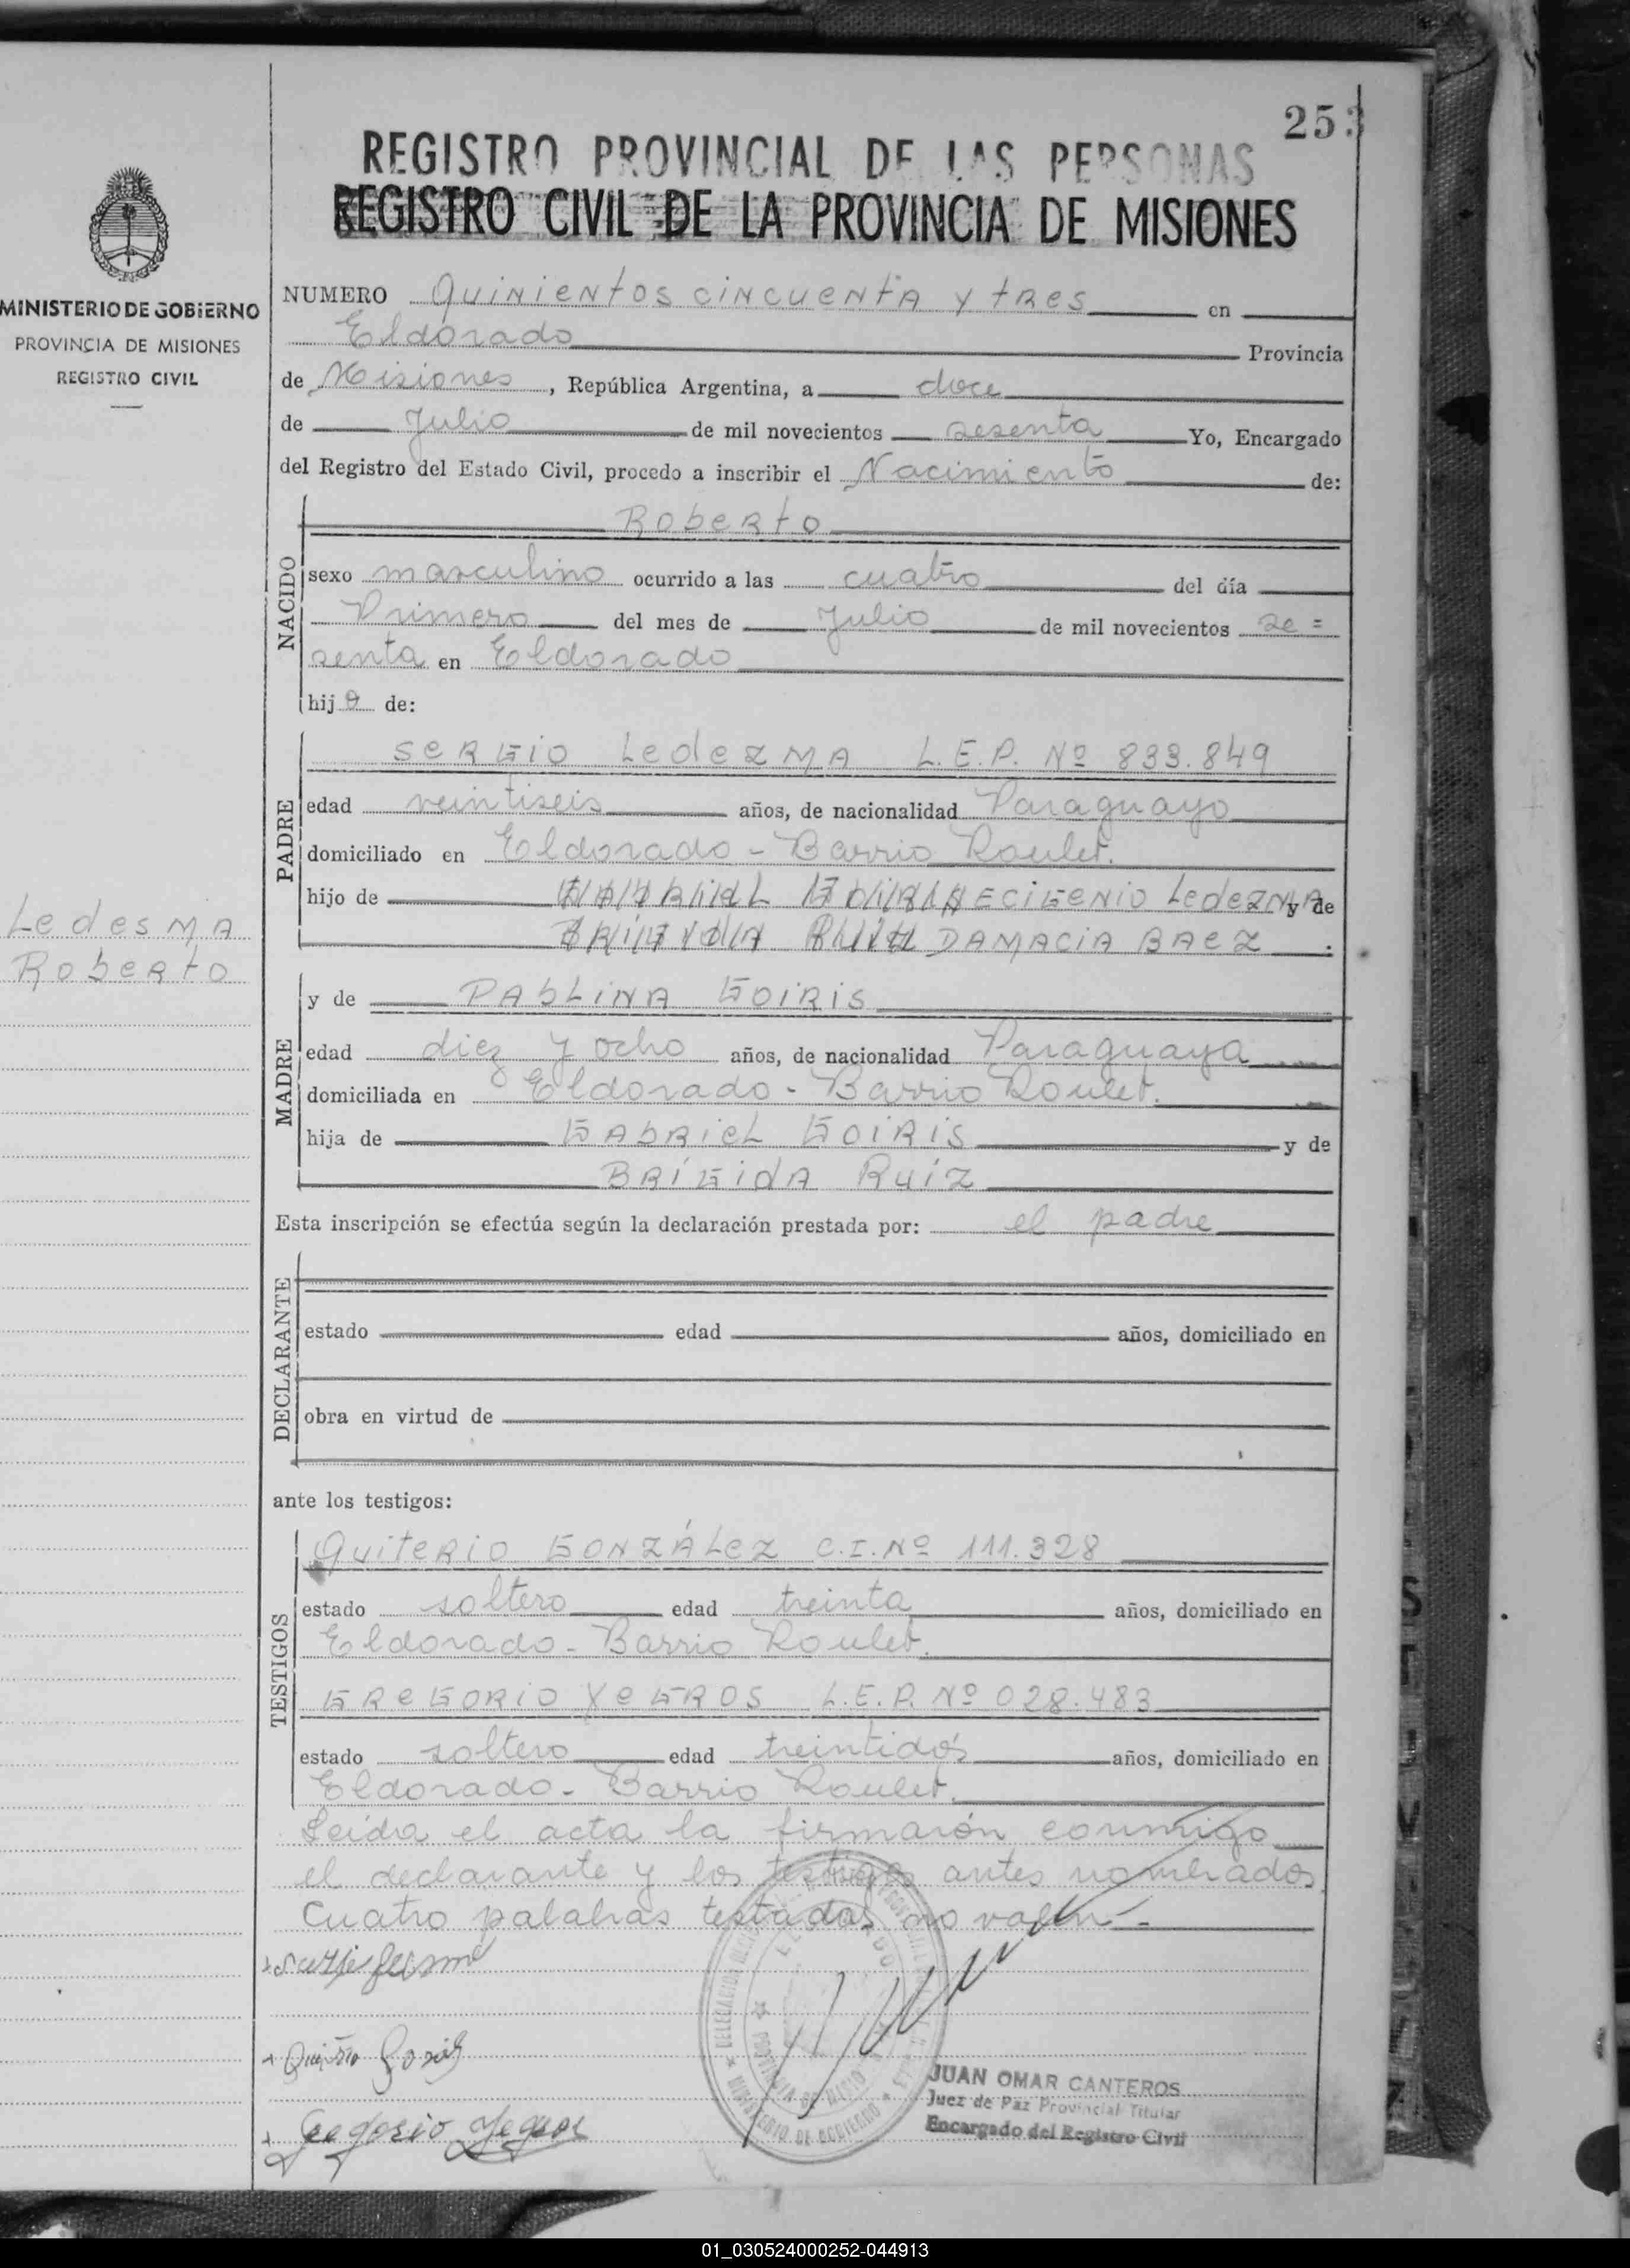 253
REGISTRO PROVINCIAL DE LAS PERSONAS
REGISTRO CIVIL DE LA PROVINCIA DE MISIONES
MINISTERIO DE GOBIERNO
PROVINCIA DE MISIONES
REGISTRO CIVIL
Ledesma
Roberto
NUMERO Quinientos cincuenta y tres en
Eldorado Provincia
de Misiones, República Argentina, a doce
de Julio de mil novecientos sesenta Yo, Encargado
del Registro del Estado Civil, procedo a inscribir el Nacimiento de:
NACIDO
Roberto
sexo masculino ocurrido a las cuatro del día
Primero del mes de Julio de mil novecientos se=
senta en Eldorado
hijo de:
PADRE
Sergio Ledezma L.E.P. Nº 833.849
edad veintiseis años, de nacionalidad Paraguayo
domiciliado en Eldorado - Barrio Roulet.
hijo de Gabriel Goiris Ecigenio Ledezma y de
Brígida Ruíz Damacia Baez
MADRE
y de Pablina Goiris
edad diez y ocho años, de nacionalidad Paraguaya
domiciliada en Eldorado - Barrio Roulet.
hija de Gabriel Goiris y de
Brígida Ruíz
Esta inscripción se efectúa según la declaración prestada por: el padre
DECLARANTE
estado edad años, domiciliado en
obra en virtud de
ante los testigos:
TESTIGOS
Quiterio González C.I. Nº 111.328
estado soltero edad treinta años, domiciliado en
Eldorado - Barrio Roulet.
Gregorio Yegros L.E.P. Nº 028.483
estado soltero edad treintidós años, domiciliado en
Eldorado - Barrio Roulet.
Leída el acta la firmarón conmigo
el declarante y los testigos antes nombrados.
Cuatro palabras testadas no valen.-
Gregorio Yegros
MINISTERIO DE GOBIERNO
JUAN OMAR CANTEROS
Juez de Paz Provincial Titular
Encargado del Registro Civil
01_030524000252-044913